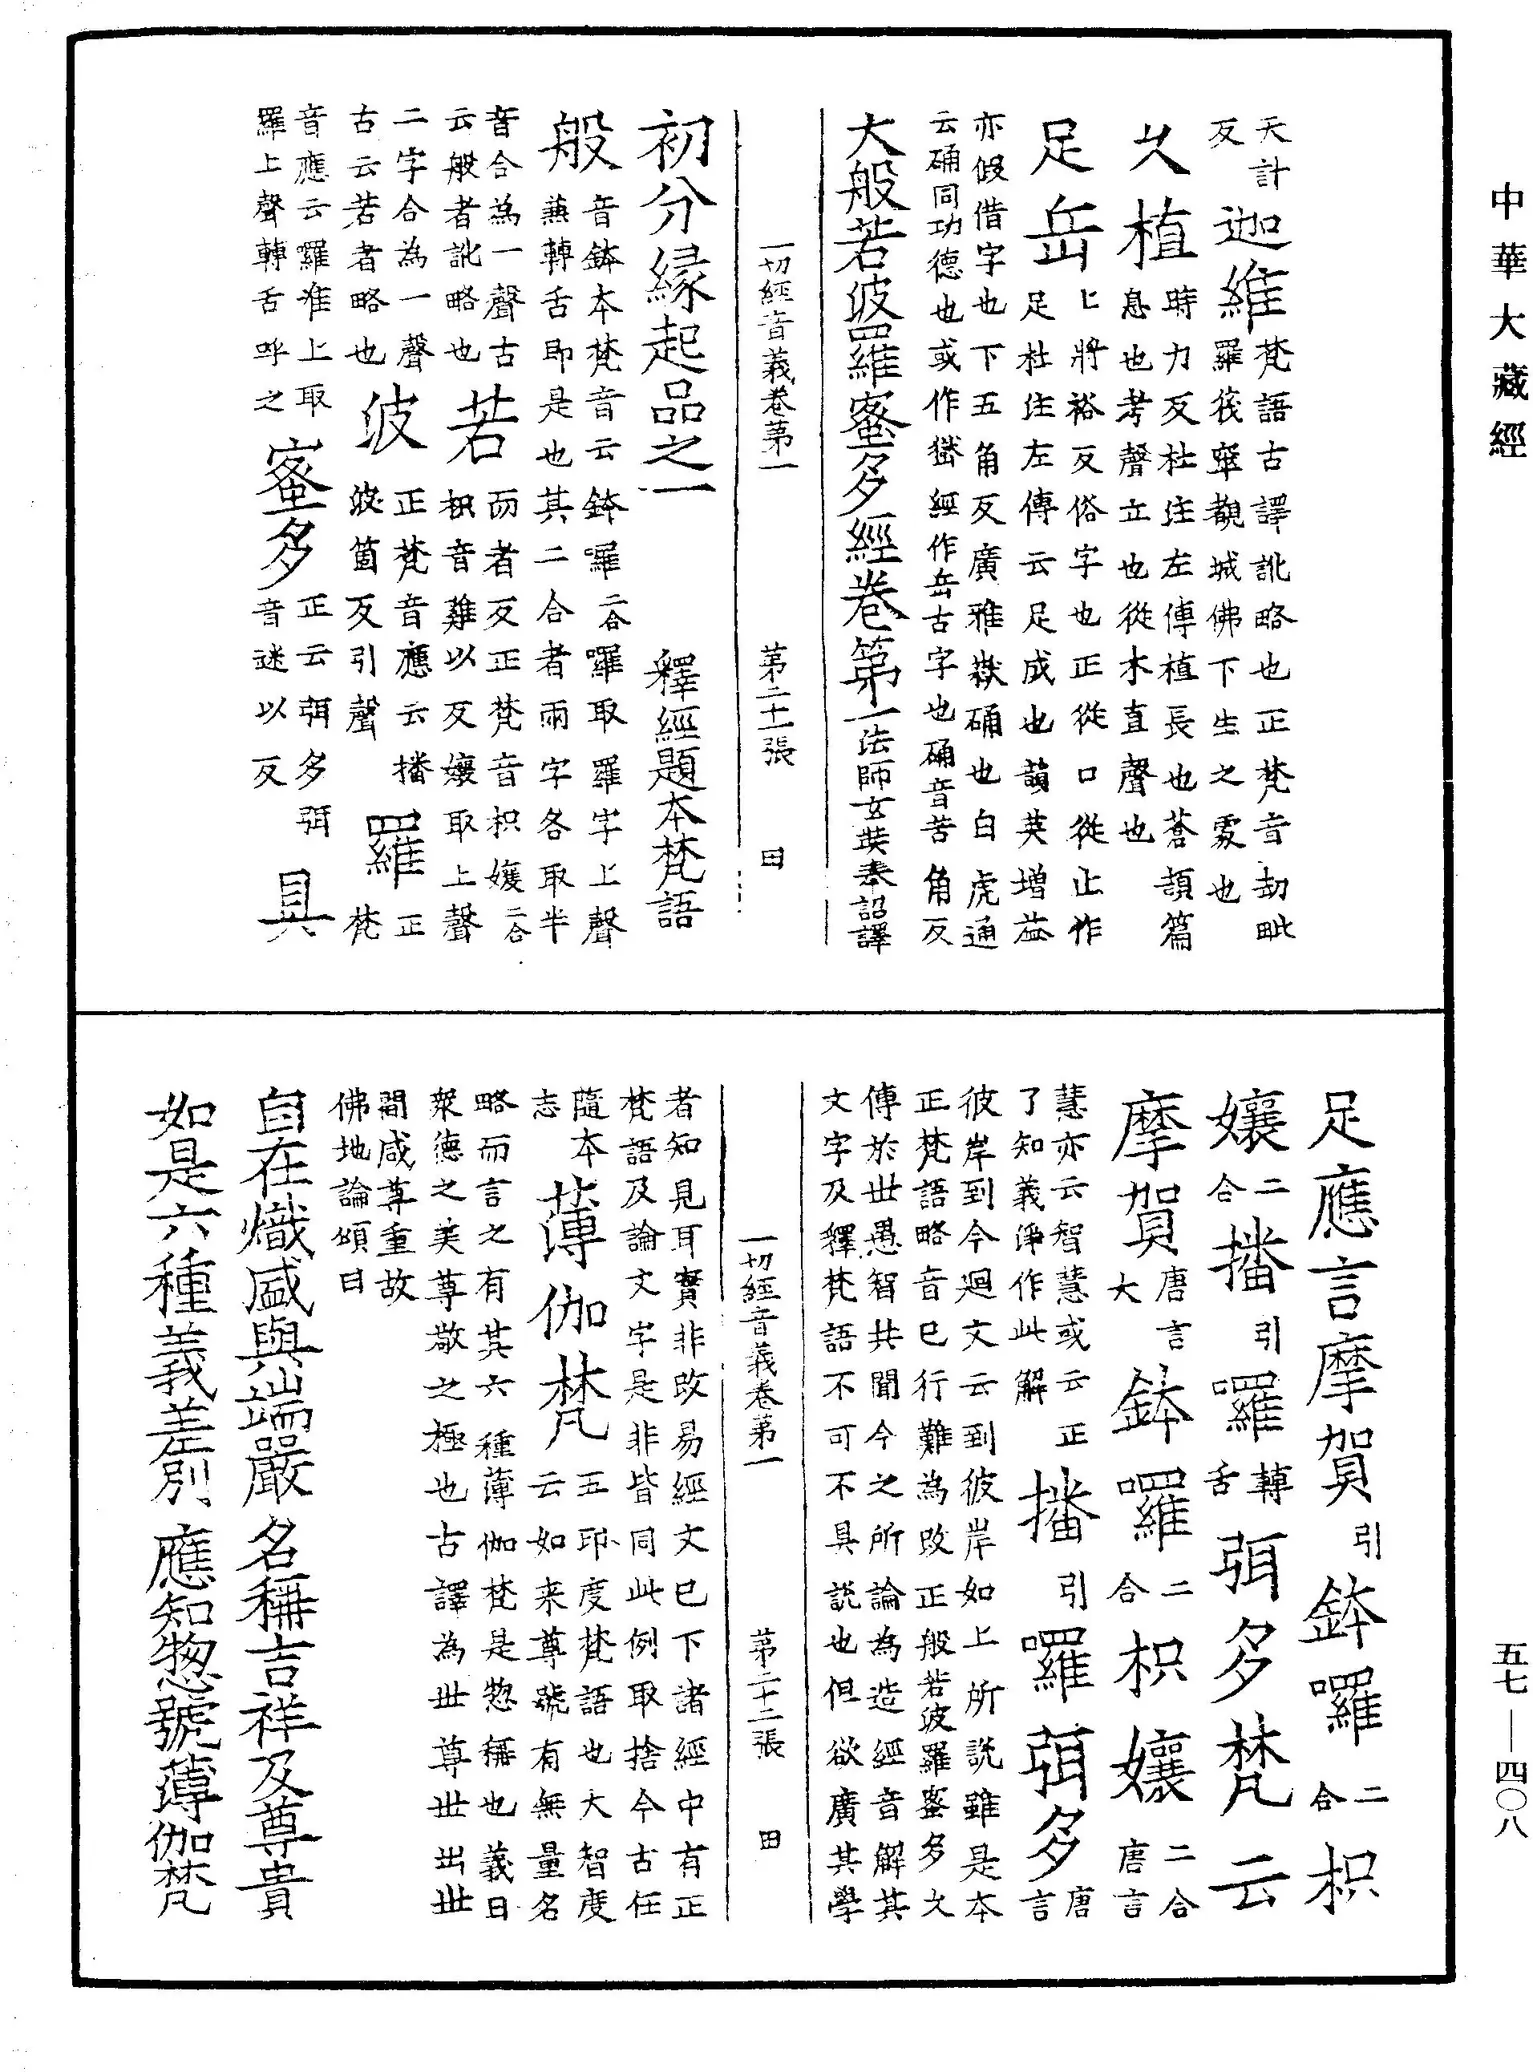 中華大藏經
天計
反
迦維
梵語古譯訛略也正梵音劫毗
羅筏窣覩城佛下生之處也
久植
時力反杜注左傳植長也蒼頡篇
息也考聲立也從木直聲也
足岳
上將裕反俗字也正從口從止作
足杜注左傳云足成也韻英增益
亦假借字也下五角反廣雅嶽确也白虎通
云确同功德也或作嶽經作岳古字也确音苦角反
大般若波羅蜜多經卷第一
法師玄奘奉詔譯
一切經音義卷第一 第二十一張 田
初分緣起品之一 釋經題本梵語
般
音鉢本梵音云鉢囉二合囉取羅字上聲
兼轉舌即是也其二合者兩字各取半
音合為一聲古
云般者訛略也
若
而者反正梵音枳孃二合
枳音雞以反孃取上聲
二字合為一聲
古云若者略也
波
正梵音應云播
波箇反引聲
羅
正
梵
音應云羅准上取
羅上聲轉舌呼之
蜜多
正云弭多弭
音迷以反
具
足應言摩賀引鉢囉二合枳
孃二合播引囉轉舌弭多梵云
摩賀唐言大鉢囉二合枳孃二合唐言
慧亦云智慧或云正
了知義淨作此解
播引囉弭多唐言
彼岸到今迴文云到彼岸如上所説雖是本
正梵語略音已行難為改正般若波羅蜜多久
傳於世愚智共聞今之所論為造經音解其
文字及釋梵語不可不具説也但欲廣其學
一切經音義卷第一 第二十二張 田
者知見耳實非改易經文已下諸經中有正
梵語及論文字是非皆同此例取捨今古任
隨本
志
薄伽梵
五印度梵語也大智度
云如来尊號有無量名
略而言之有其六種薄伽梵是惣稱也義曰
衆德之美尊敬之極也古譯為世尊世出世
間咸尊重故
佛地論頌曰
自在熾盛與端嚴 名稱吉祥及尊貴
如是六種義差別 應知惣號薄伽梵
五七—四〇八